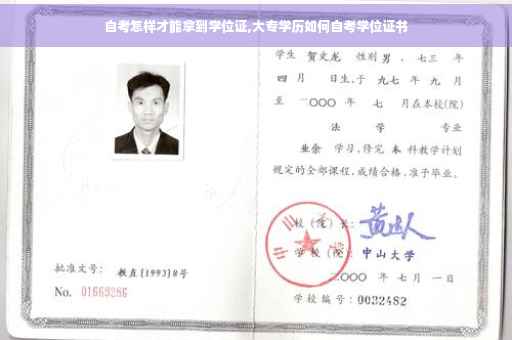 自考怎样才能拿到学位证,大专学历如何自考学位证书
学生 贺文龙 性别 男 、七三 年
四 月 日生,于 九七 年 九 月
至 二〇〇〇 年 七 月在本校(院)
法 学 专业
业余 学习,修完 本 科教学计划
规定的全部课程,成绩合格,准予毕业。
校 (院) 长:
学 校 (院): 中山大学
二〇〇〇 年 七 月 一 日
学校编号: 0032482
批准文号: 教直[1993]8号
No. 01669286